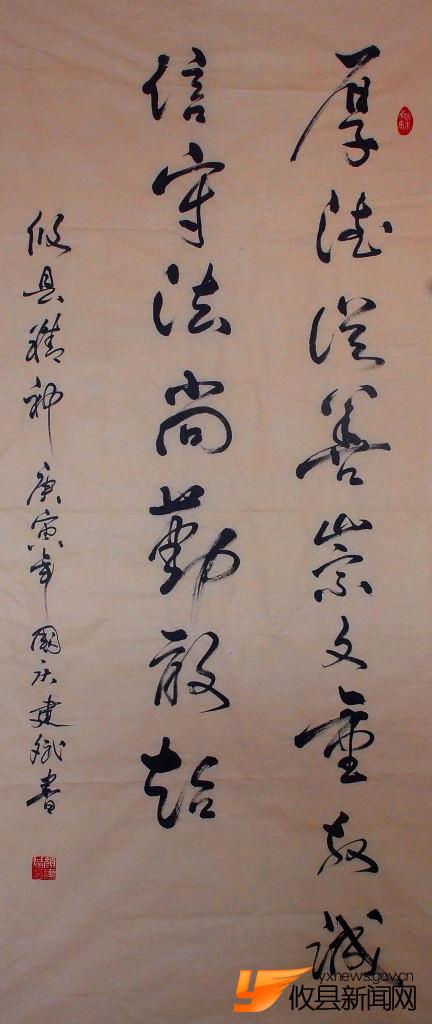 厚德從善崇文重教誠
信守法尚勤敢超
攸县精神 庚寅年國庆建斌書
yxnews.gov.cn
攸县新闻网